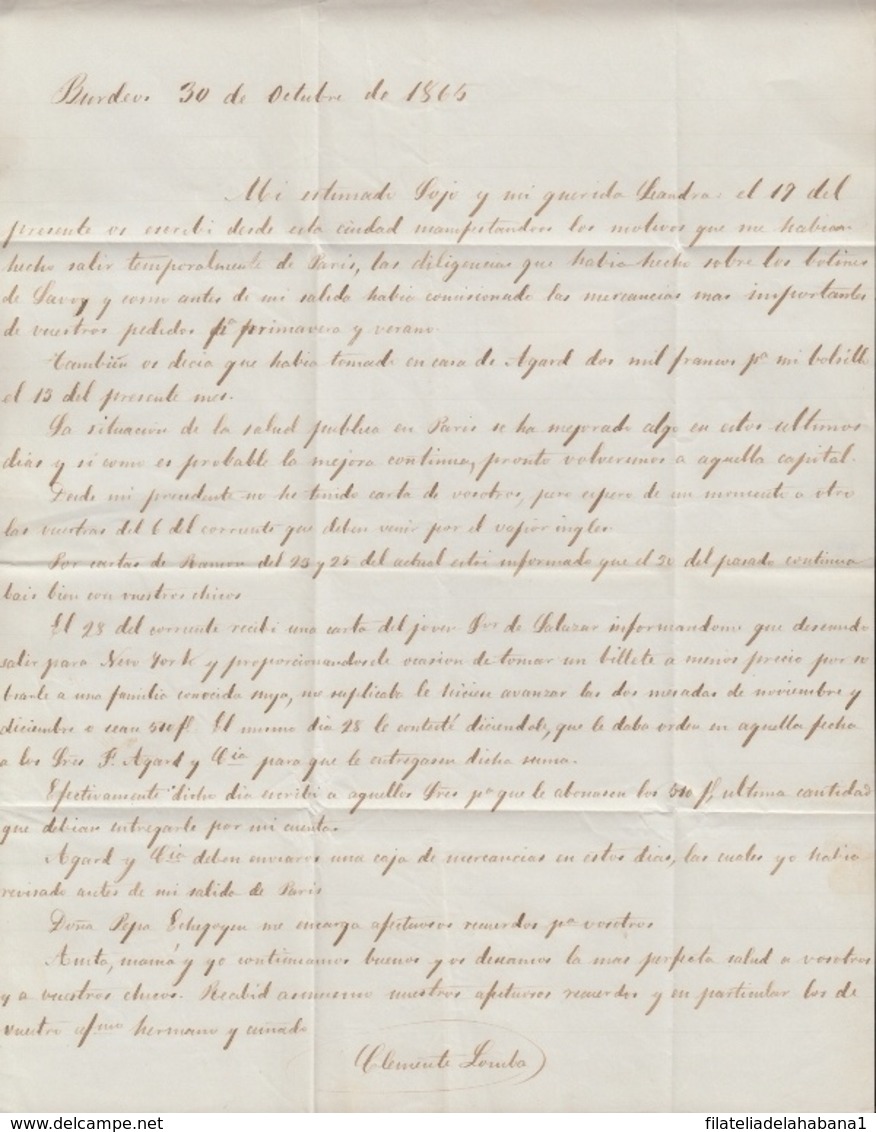 Burdeos 30 de Octubre de 1865
Mi estimado Jojo y mi querida Leandra: el 19 del
presente os escribi desde esta ciudad manifestandoos los motivos que me habian
hecho salir temporalmente de Paris, las diligencias que habia hecho sobre los botines
de Savoy y como antes de mi salida habia comisionado las mercancias mas importantes
de vuestros pedidos pª primavera y verano.
También os decia que habia tomado en casa de Agard dos mil francos pª mi bolsillo
el 13 del presente mes.
La situacion de la salud publica en Paris se ha mejorado algo en estos ultimos
dias y si como es probable la mejora continua, pronto volveremos a aquella capital.
Desde mi precedente no he tenido carta de vosotros, pero espero de un momento a otro
las vuestras del 6 del corriente que deben venir por el vapor ingles.
Por cartas de Ramon del 23 y 25 del actual estoi informado que el 30 del pasado continua
bais bien con vuestros chicos
El 28 del corriente recibi una carta del joven Sor de Salazar informandome que deseando
salir para New York y proporcionandosele ocasion de tomar un billete a menos precio por so
brarle a una familia conocida suya, me suplicaba le hiciese avanzar las dos mesadas de noviembre y
diciembre o sean 510 f. El mismo dia 28 le contesté diciendole, que le daba orden en aquella fecha
a los Sres F. Agard y Cia para que le entregasen dicha suma.
Efectivamente dicho dia escribi a aquellos Sres pª que le abonasen los 510 f, ultima cantidad
que debian entregarle por mi cuenta.
Agard y Cia deben enviaros una caja de mercancias en estos dias, las cuales yo habia
revisado antes de mi salida de Paris
Doña Pepa Echegoyen me encarga afectuosos recuerdos pª vosotros
Anita, mamá y yo continuamos buenos y os deseamos la mas perfecta salud a vosotros
y a vuestros chicos. Recibid asimismo nuestros afectuosos recuerdos y en particular los de
vuestro afmo hermano y cuñado
Clemente Lomba
filateliadelahabana1